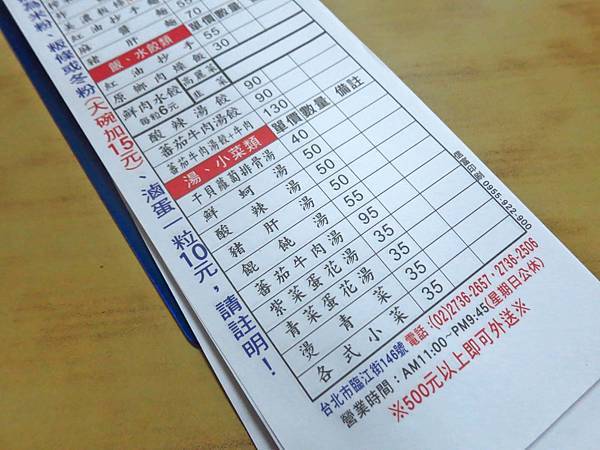 豬肝麵 70
飯、水餃類 單價 數量
紅油抄手 55
原鄉肉燥飯 30
鮮肉水餃 每粒6元 高麗菜 韭菜
酸辣湯餃 90
蕃茄牛肉湯餃 90
蕃茄牛肉湯餃+牛肉 130
湯、小菜類 單價 數量 備註
干貝蘿蔔排骨湯 40
鮮蚵湯 50
酸辣湯 50
豬肝湯 50
餛飩湯 55
蕃茄牛肉湯 95
紫菜蛋花湯 35
青菜蛋花湯 35
燙青菜 35
各式小菜 35
為米粉、粄條或冬粉(大碗加15元)、滷蛋一粒10元,請註明!
印刷 0955-922-900
台北市臨江街146號 電話:(02)2736-2657、2736-2506
營業時間:AM11:00-PM9:45(星期日公休)
※500元以上即可外送※